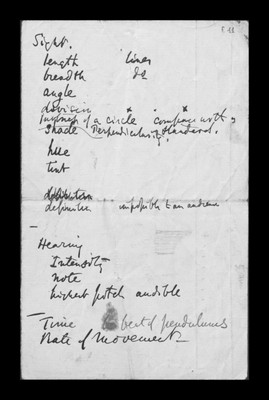 Sight.
length lines
breadth do
angle
division
of a circle compare with
Shade Perpendicularity. standard.
hue
tint
definition impossible to an audience
Hearing
Intensity
note
highest pitch audible
Time beat of pendulums
Rate of movement